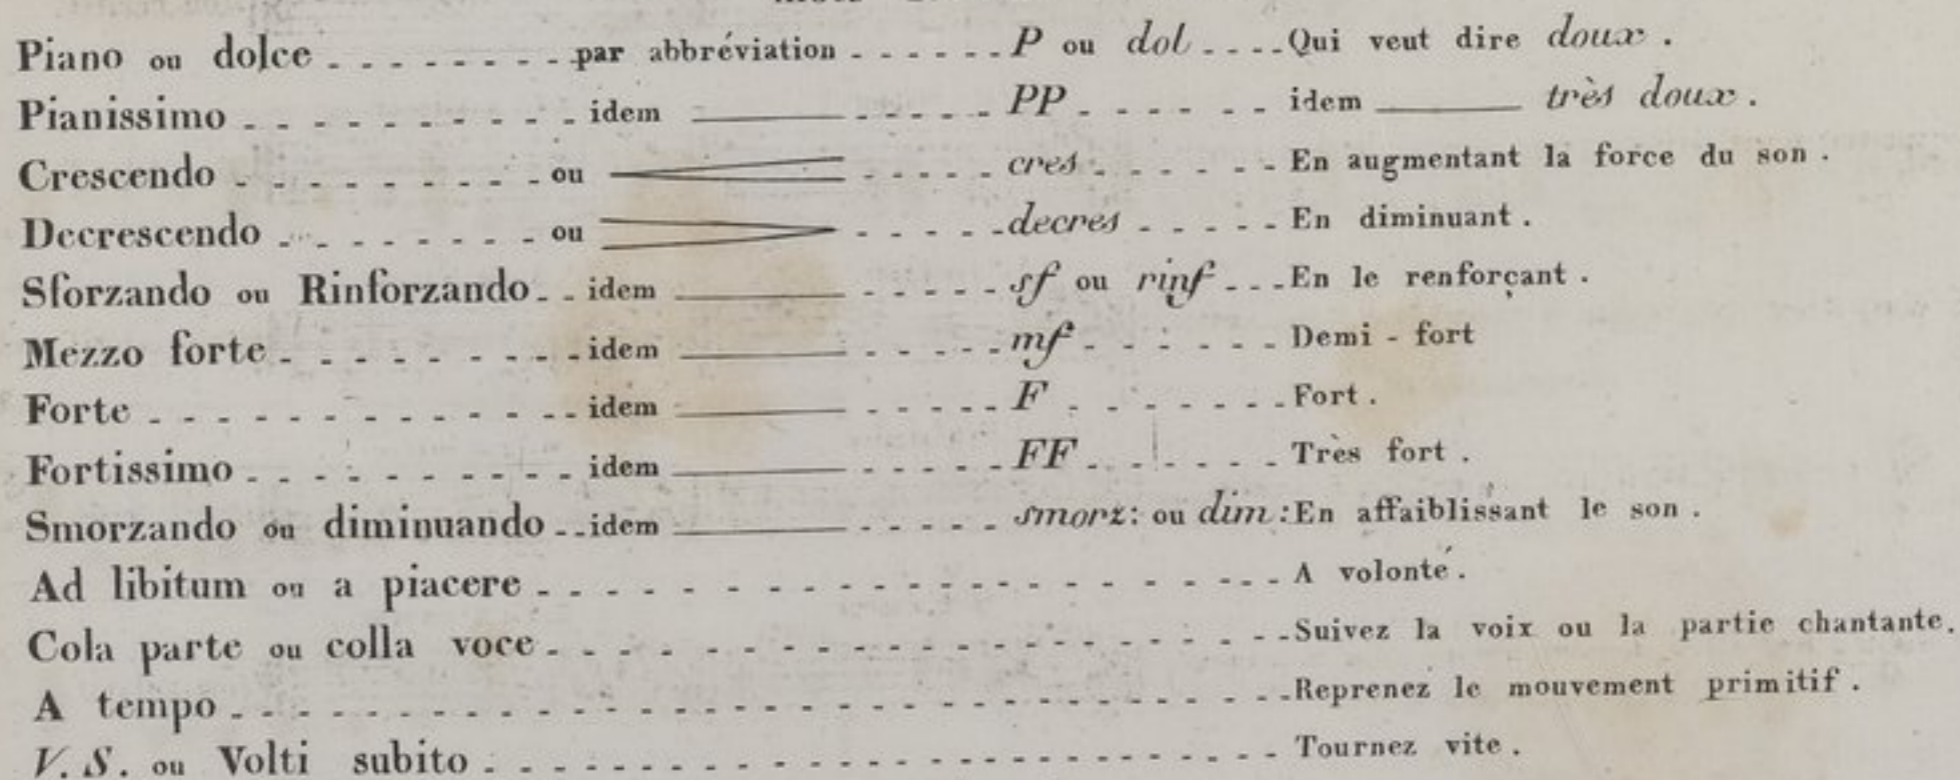 Piano ou dolce - - - - - - - - - par abbréviation - - - - - - P ou dol - - - - Qui veut dire doux .
Pianissimo - - - - - - - - - - idem ——— - - - - - PP - - - - - - idem ——— très doux .
Crescendo - - - - - - - - - ou - - - - - cres - - - - - - En augmentant la force du son .
Decrescendo - - - - - - - - ou - - - - - decres - - - - - En diminuant .
Sforzando ou Rinforzando - - idem ——— - - - - - sf ou rinf - - - En le renforçant .
Mezzo forte - - - - - - - - - idem ——— - - - - - mf - - - - - - Demi - fort
Forte - - - - - - - - - - - - - idem ——— - - - - - F - - - - - - - Fort .
Fortissimo - - - - - - - - - - idem ——— - - - - - FF - - - - - - Très fort .
Smorzando ou diminuando - - idem ——— - - - - - smorz : ou dim : En affaiblissant le son .
Ad libitum ou a piacere - - - - - - - - - - - - - - - - - - A volonté .
Cola parte ou colla voce - - - - - - - - - - - - - - - - - - Suivez la voix ou la partie chantante .
A tempo - - - - - - - - - - - - - - - - - - - - - - - - - - Reprenez le mouvement primitif .
V. S. ou Volti subito - - - - - - - - - - - - - - - - - - - - Tournez vite .